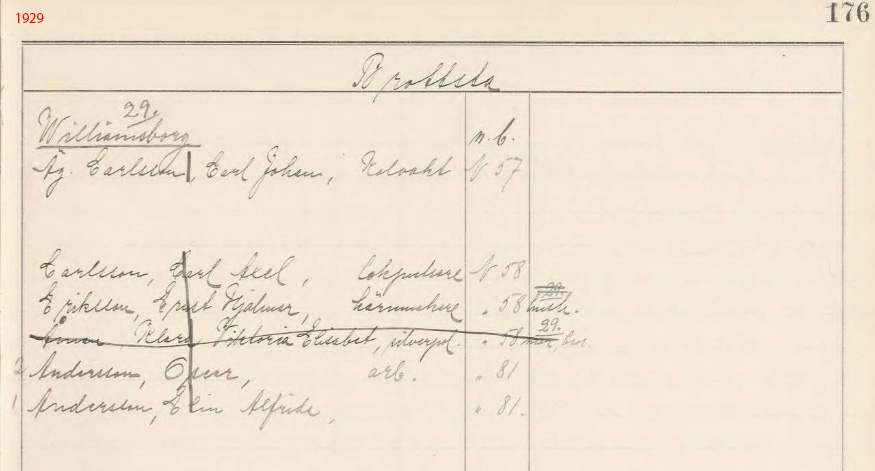 1929
176
Brottsta
29.
Williamsborg n. b.
Äg. Carlsson, Carl Johan, Kolvakt N 57
Carlsson, Carl Axel, lokputsare N 58
29.
Eriksson, Ernst Hjalmar, " 58
29.
Klara Viktoria Elisabet, silverpol. " 58
2 Andersson, Oscar, arb. " 81
1 Andersson, Elin Alfrida, " 81.